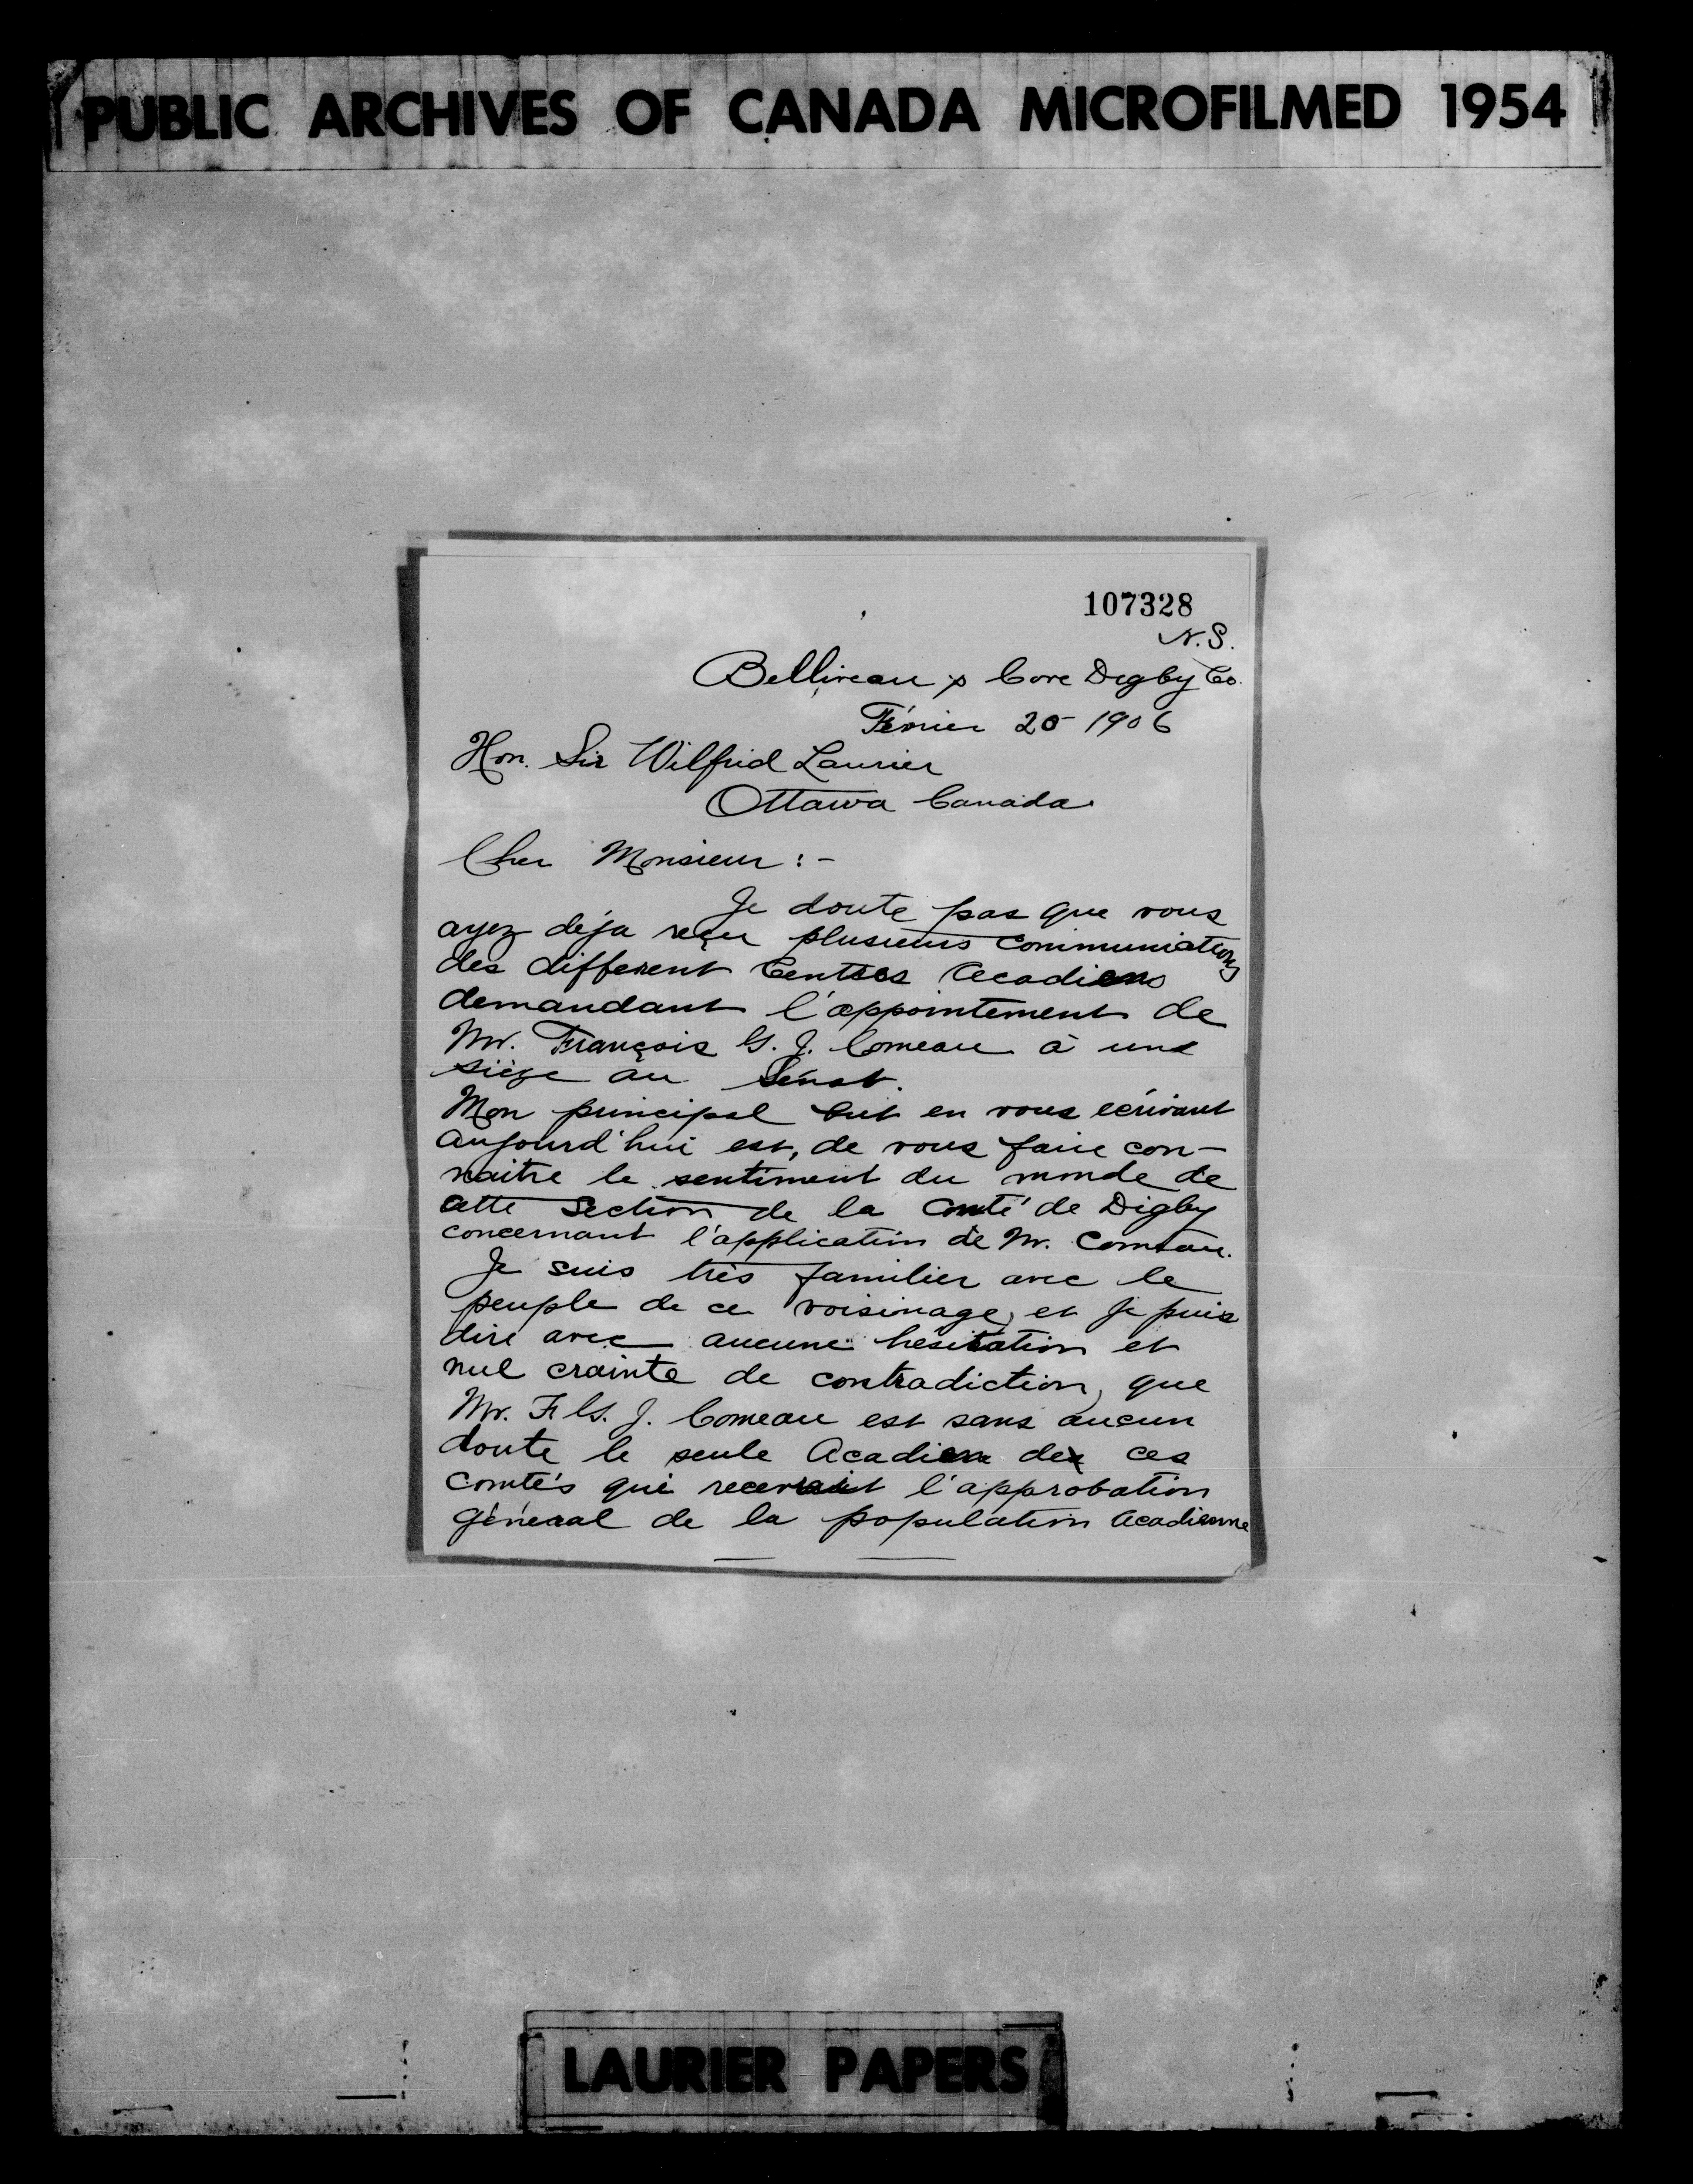 PUBLIC ARCHIVES OF CANADA MICROFILMED 1954
107328
N.S.
Belliveau's Cove Digby Co.
Février 20 1906
Hon. Sir Wilfrid Laurier
Ottawa Canada
Cher Monsieur :-
Je doute pas que vous
ayez déja reçu plusieurs communications
des different Centres Acadiens
demandant l'appointement de
Mr. François G. J. Comeau à une
siège au Sénat.
Mon principal but en vous ecrivant
aujourd'hui est, de vous faire con-
naitre le sentiment du monde de
cette Section de la Comté de Digby
concernant l'application de Mr. Comeau.
Je suis très familier avec le
peuple de ce voisinage, et je puis
dire avec aucune hésitation et
nul crainte de contradiction, que
Mr. F. G. J. Comeau est sans aucun
doute le seule Acadien de ces
comtés qui recevrait l'approbation
général de la population Acadienne
LAURIER PAPERS